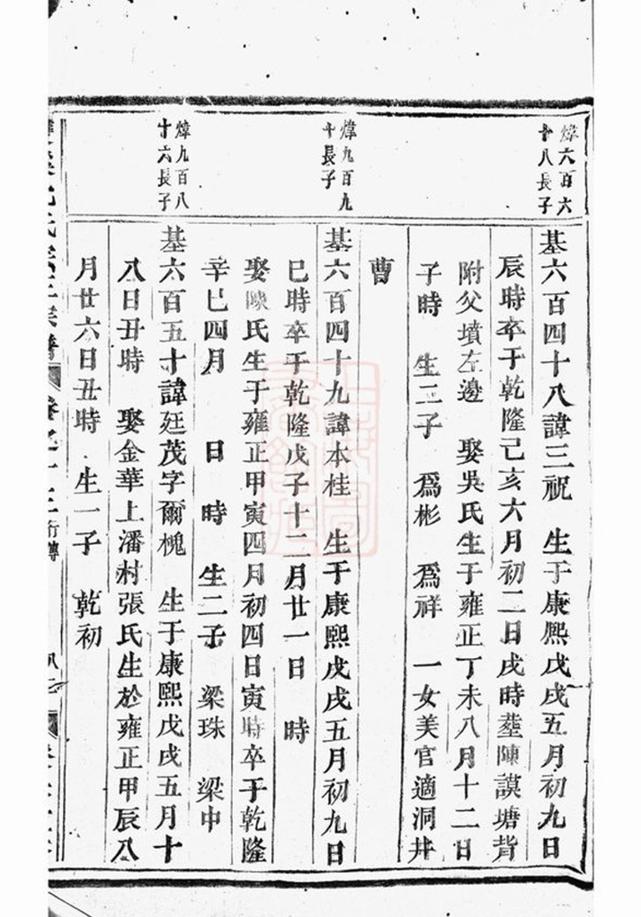 煒六百六
十八長子
基六百四十八諱三祝　生于康熙戊戌五月初九日
辰時卒于乾隆己亥六月初二日戌時塟陳謨塘背
附父墳左邊　娶吳氏生于雍正丁未八月十二日
子時　生二子　爲彬　爲祥　一女美官適洞井
曹
煒九百九
十長子
基六百四十九諱本桂　生于康熙戊戌五月初九日
巳時卒于乾隆戊子十二月廿一日　時
娶陳氏生于雍正甲寅四月初四日寅時卒于乾隆
辛巳四月　日　時　生二子　梁珠　梁中
煒九百八
十六長子
基六百五十諱廷茂字爾槐　生于康熙戊戌五月十
八日丑時　娶金華上潘村張氏生於雍正甲辰八
月廿六日丑時　生一子　乾初
宗譜
卷之十三
行傳